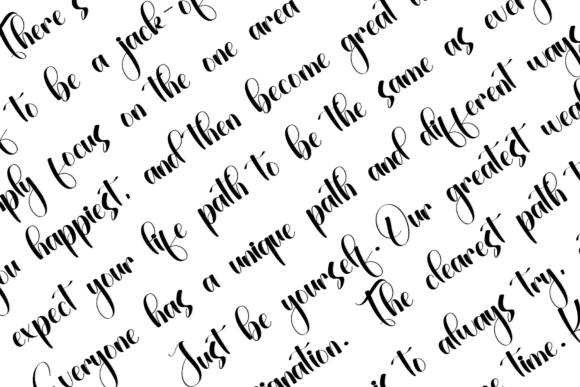 There's
to be a jack-of
focus on the one area
you happiest, and then become great
expect your life path to be the same as
Everyone has a unique path and different ways
Just be yourself. Our greatest
The clearest path
is to always try,
time.